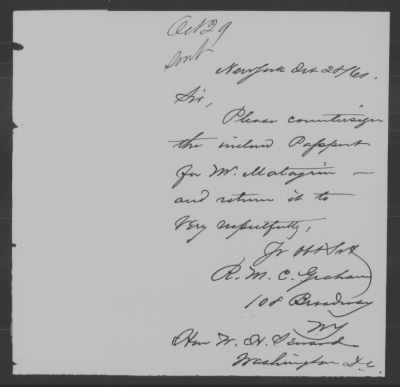 Oct 29
sent
New York Oct 28/61.
Sir,
Please countersign
the inclosed Passport
for Mr. Matagrin —
and return it to
Very respectfully,
Yr Obt Svt
R. M. C. Graham
108 Broadway
N.Y
Hon W. H. Seward
Washington D.C.